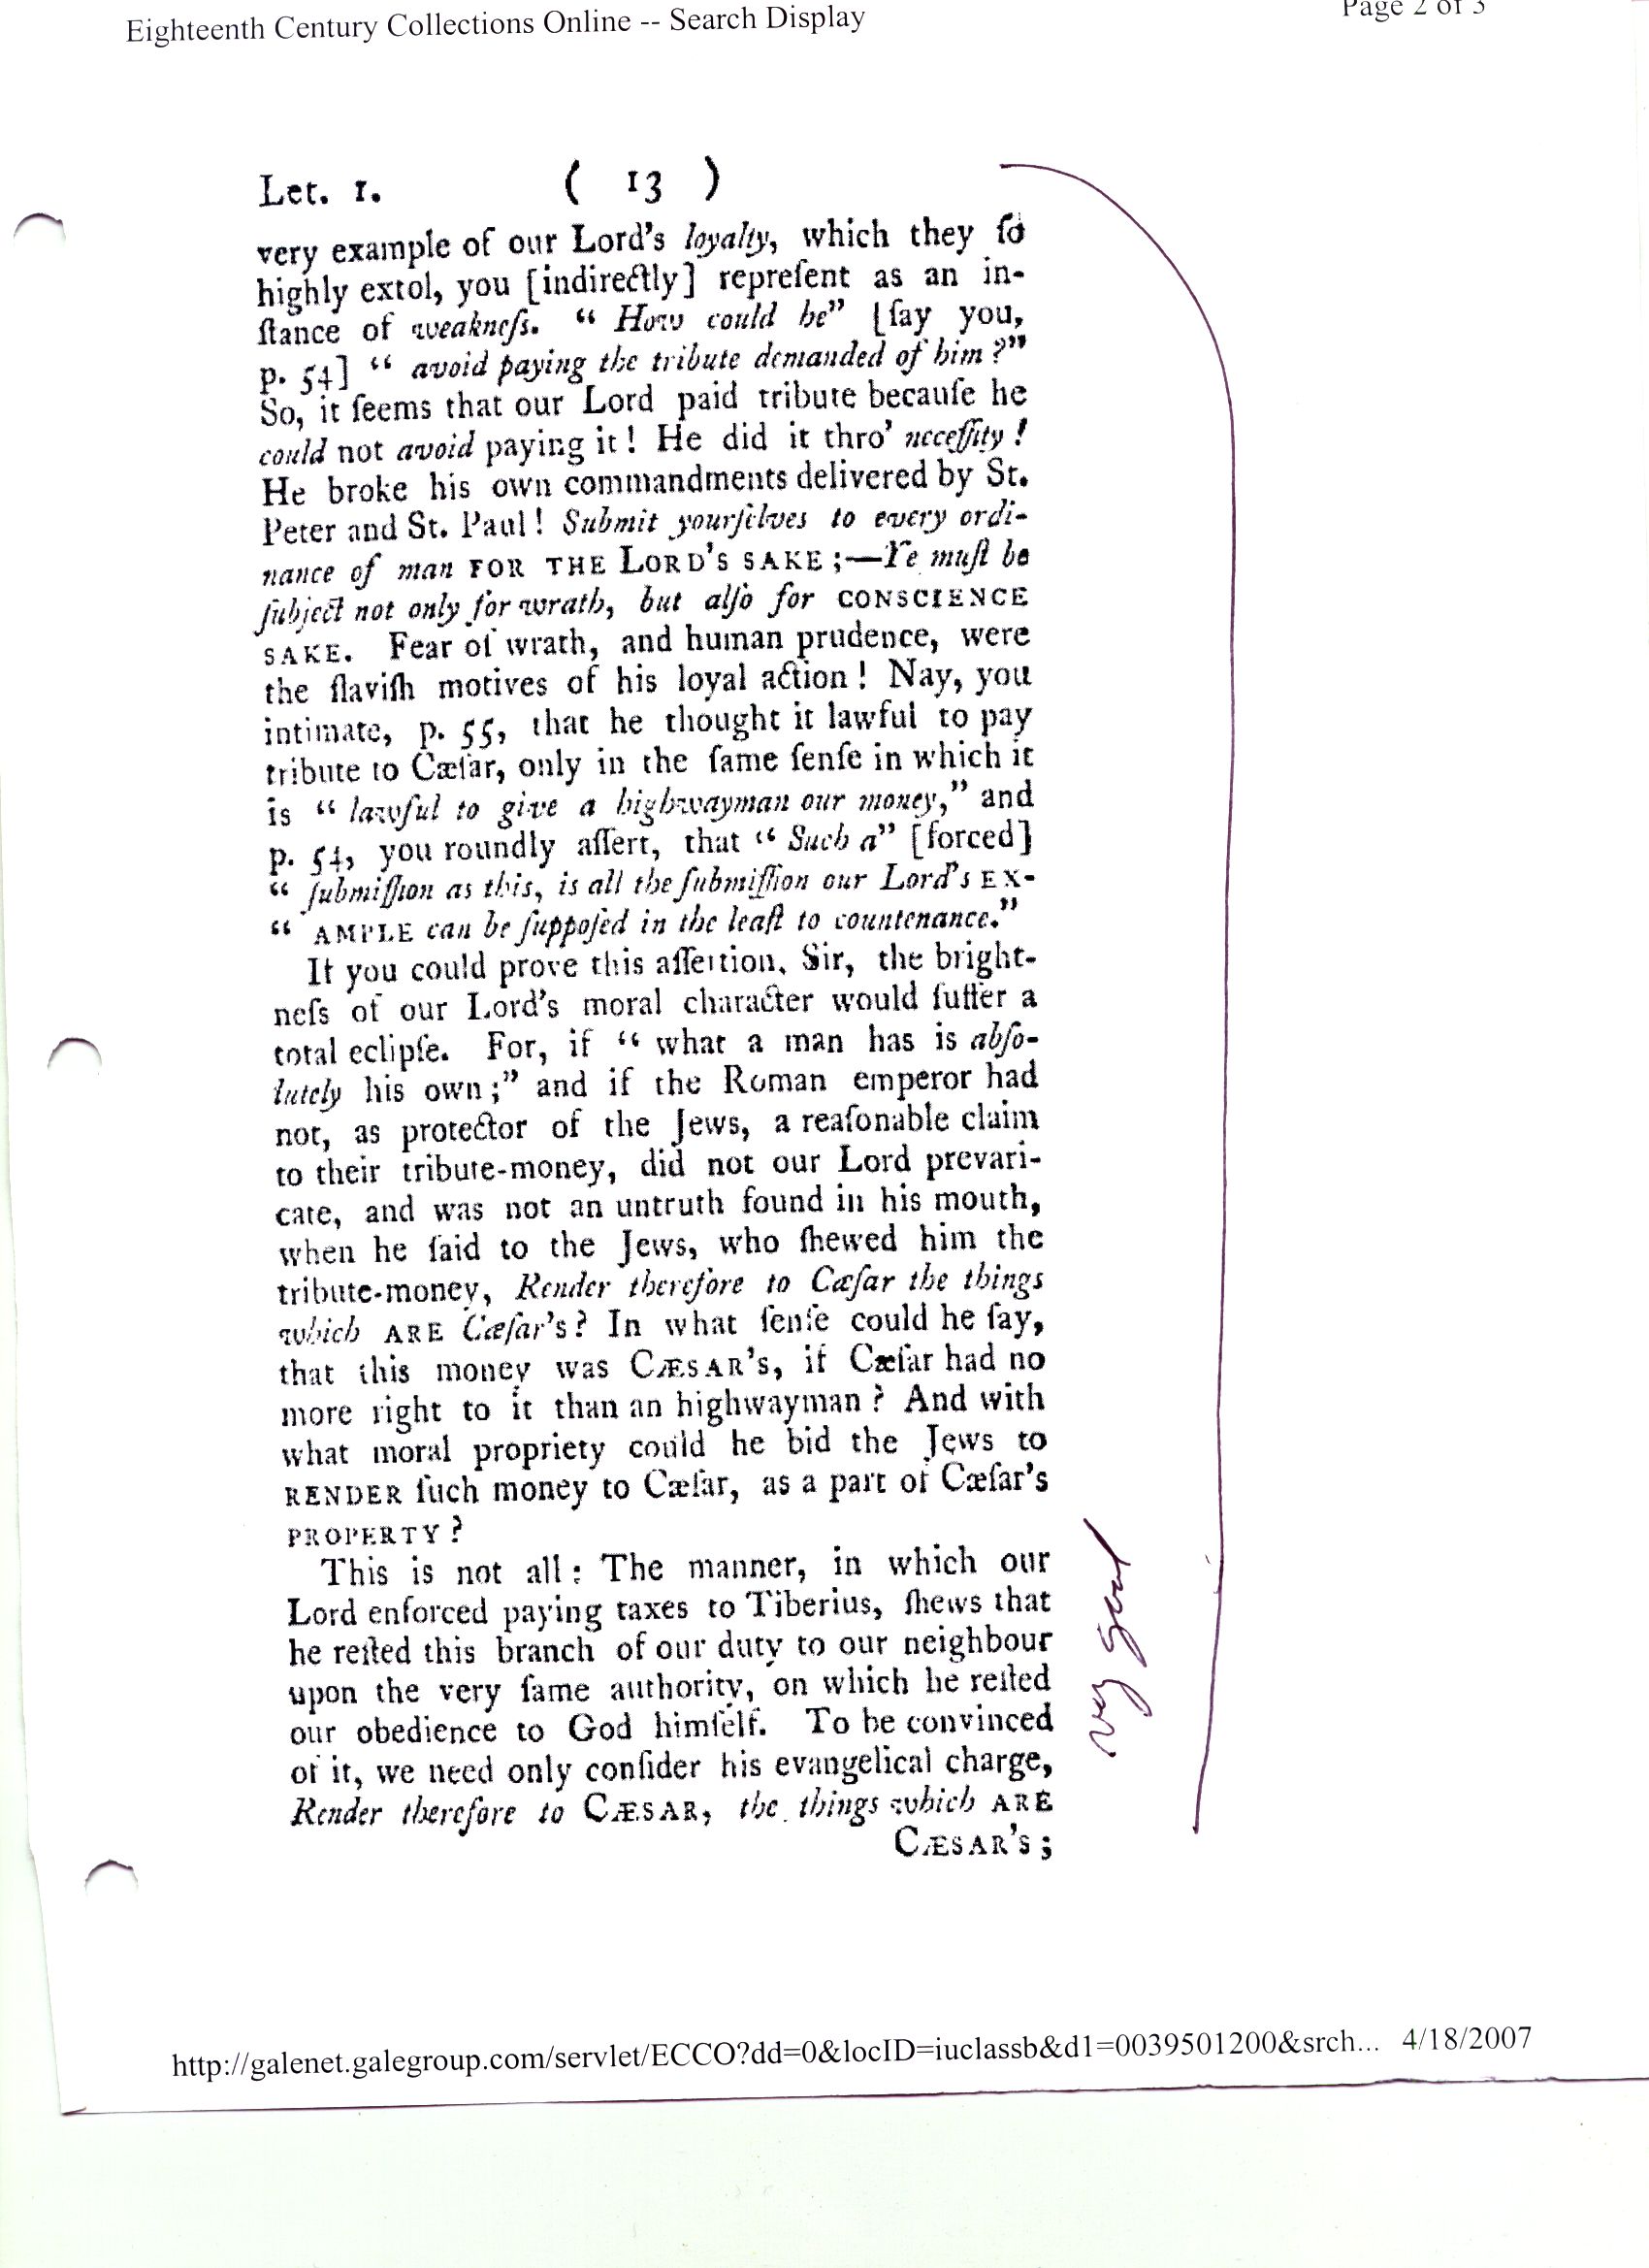 Eighteenth Century Collections Online -- Search Display
Page 2 of 3
Let. 1.
( 13 )
very example of our Lord's loyalty, which they ſo
highly extol, you [indirectly] repreſent as an in-
ſtance of weakneſs. “ How could he” [ſay you,
p. 54] “ avoid paying the tribute demanded of him?”
So, it ſeems that our Lord paid tribute becauſe he
could not avoid paying it! He did it thro' neceſſity!
He broke his own commandments delivered by St.
Peter and St. Paul! Submit yourſelves to every ordi-
nance of man FOR THE LORD'S SAKE;—Ye muſt be
ſubject not only for wrath, but alſo for CONSCIENCE
SAKE. Fear of wrath, and human prudence, were
the ſlaviſh motives of his loyal action! Nay, you
intimate, p. 55, that he thought it lawful to pay
tribute to Cæſar, only in the ſame ſenſe in which it
is “ lawful to give a highwayman our money,” and
p. 54, you roundly aſſert, that “ Such a” [forced]
“ ſubmiſſion as this, is all the ſubmiſſion our Lord's EX-
“ AMPLE can be ſuppoſed in the leaſt to countenance.”
If you could prove this aſſertion, Sir, the bright-
neſs of our Lord's moral character would ſuffer a
total eclipſe. For, if “ what a man has is abſo-
lutely his own;” and if the Roman emperor had
not, as protector of the Jews, a reaſonable claim
to their tribute-money, did not our Lord prevari-
cate, and was not an untruth found in his mouth,
when he ſaid to the Jews, who ſhewed him the
tribute-money, Render therefore to Cæſar the things
which ARE Cæſar's? In what ſenſe could he ſay,
that this money was CÆSAR'S, if Cæſar had no
more right to it than an highwayman? And with
what moral propriety could he bid the Jews to
RENDER ſuch money to Cæſar, as a part of Cæſar's
PROPERTY?
This is not all: The manner, in which our
Lord enforced paying taxes to Tiberius, ſhews that
he reſted this branch of our duty to our neighbour
upon the very ſame authority, on which he reſted
our obedience to God himſelf. To be convinced
of it, we need only conſider his evangelical charge,
Render therefore to CÆSAR, the things which ARE
CÆSAR'S;
very good
http://galenet.galegroup.com/servlet/ECCO?dd=0&locID=iuclassb&d1=0039501200&srch... 4/18/2007